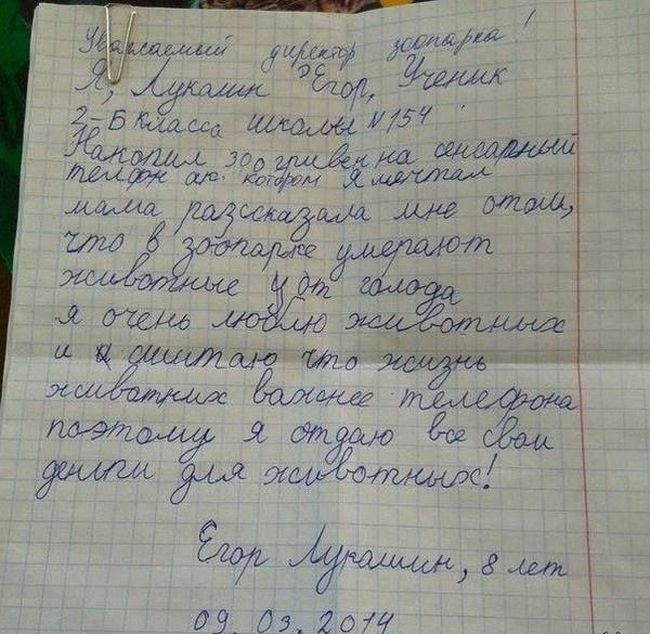 Уважаемый директор зоопарка!
Я, Лукашин Егор, Ученик
2-Б класса школы №154
Накопил 300 гривен на сенсарный
телфон о котором я мечтал
мама разсказала мне отом,
что в зоопарке умерают
животные от голода
я очень люблю животных
и сшитаю что жизнь
животних важнее телефона
поэтому я отдаю все свои
деньги для животных!
Егор Лукашин, 8 лет
09. 03. 2014